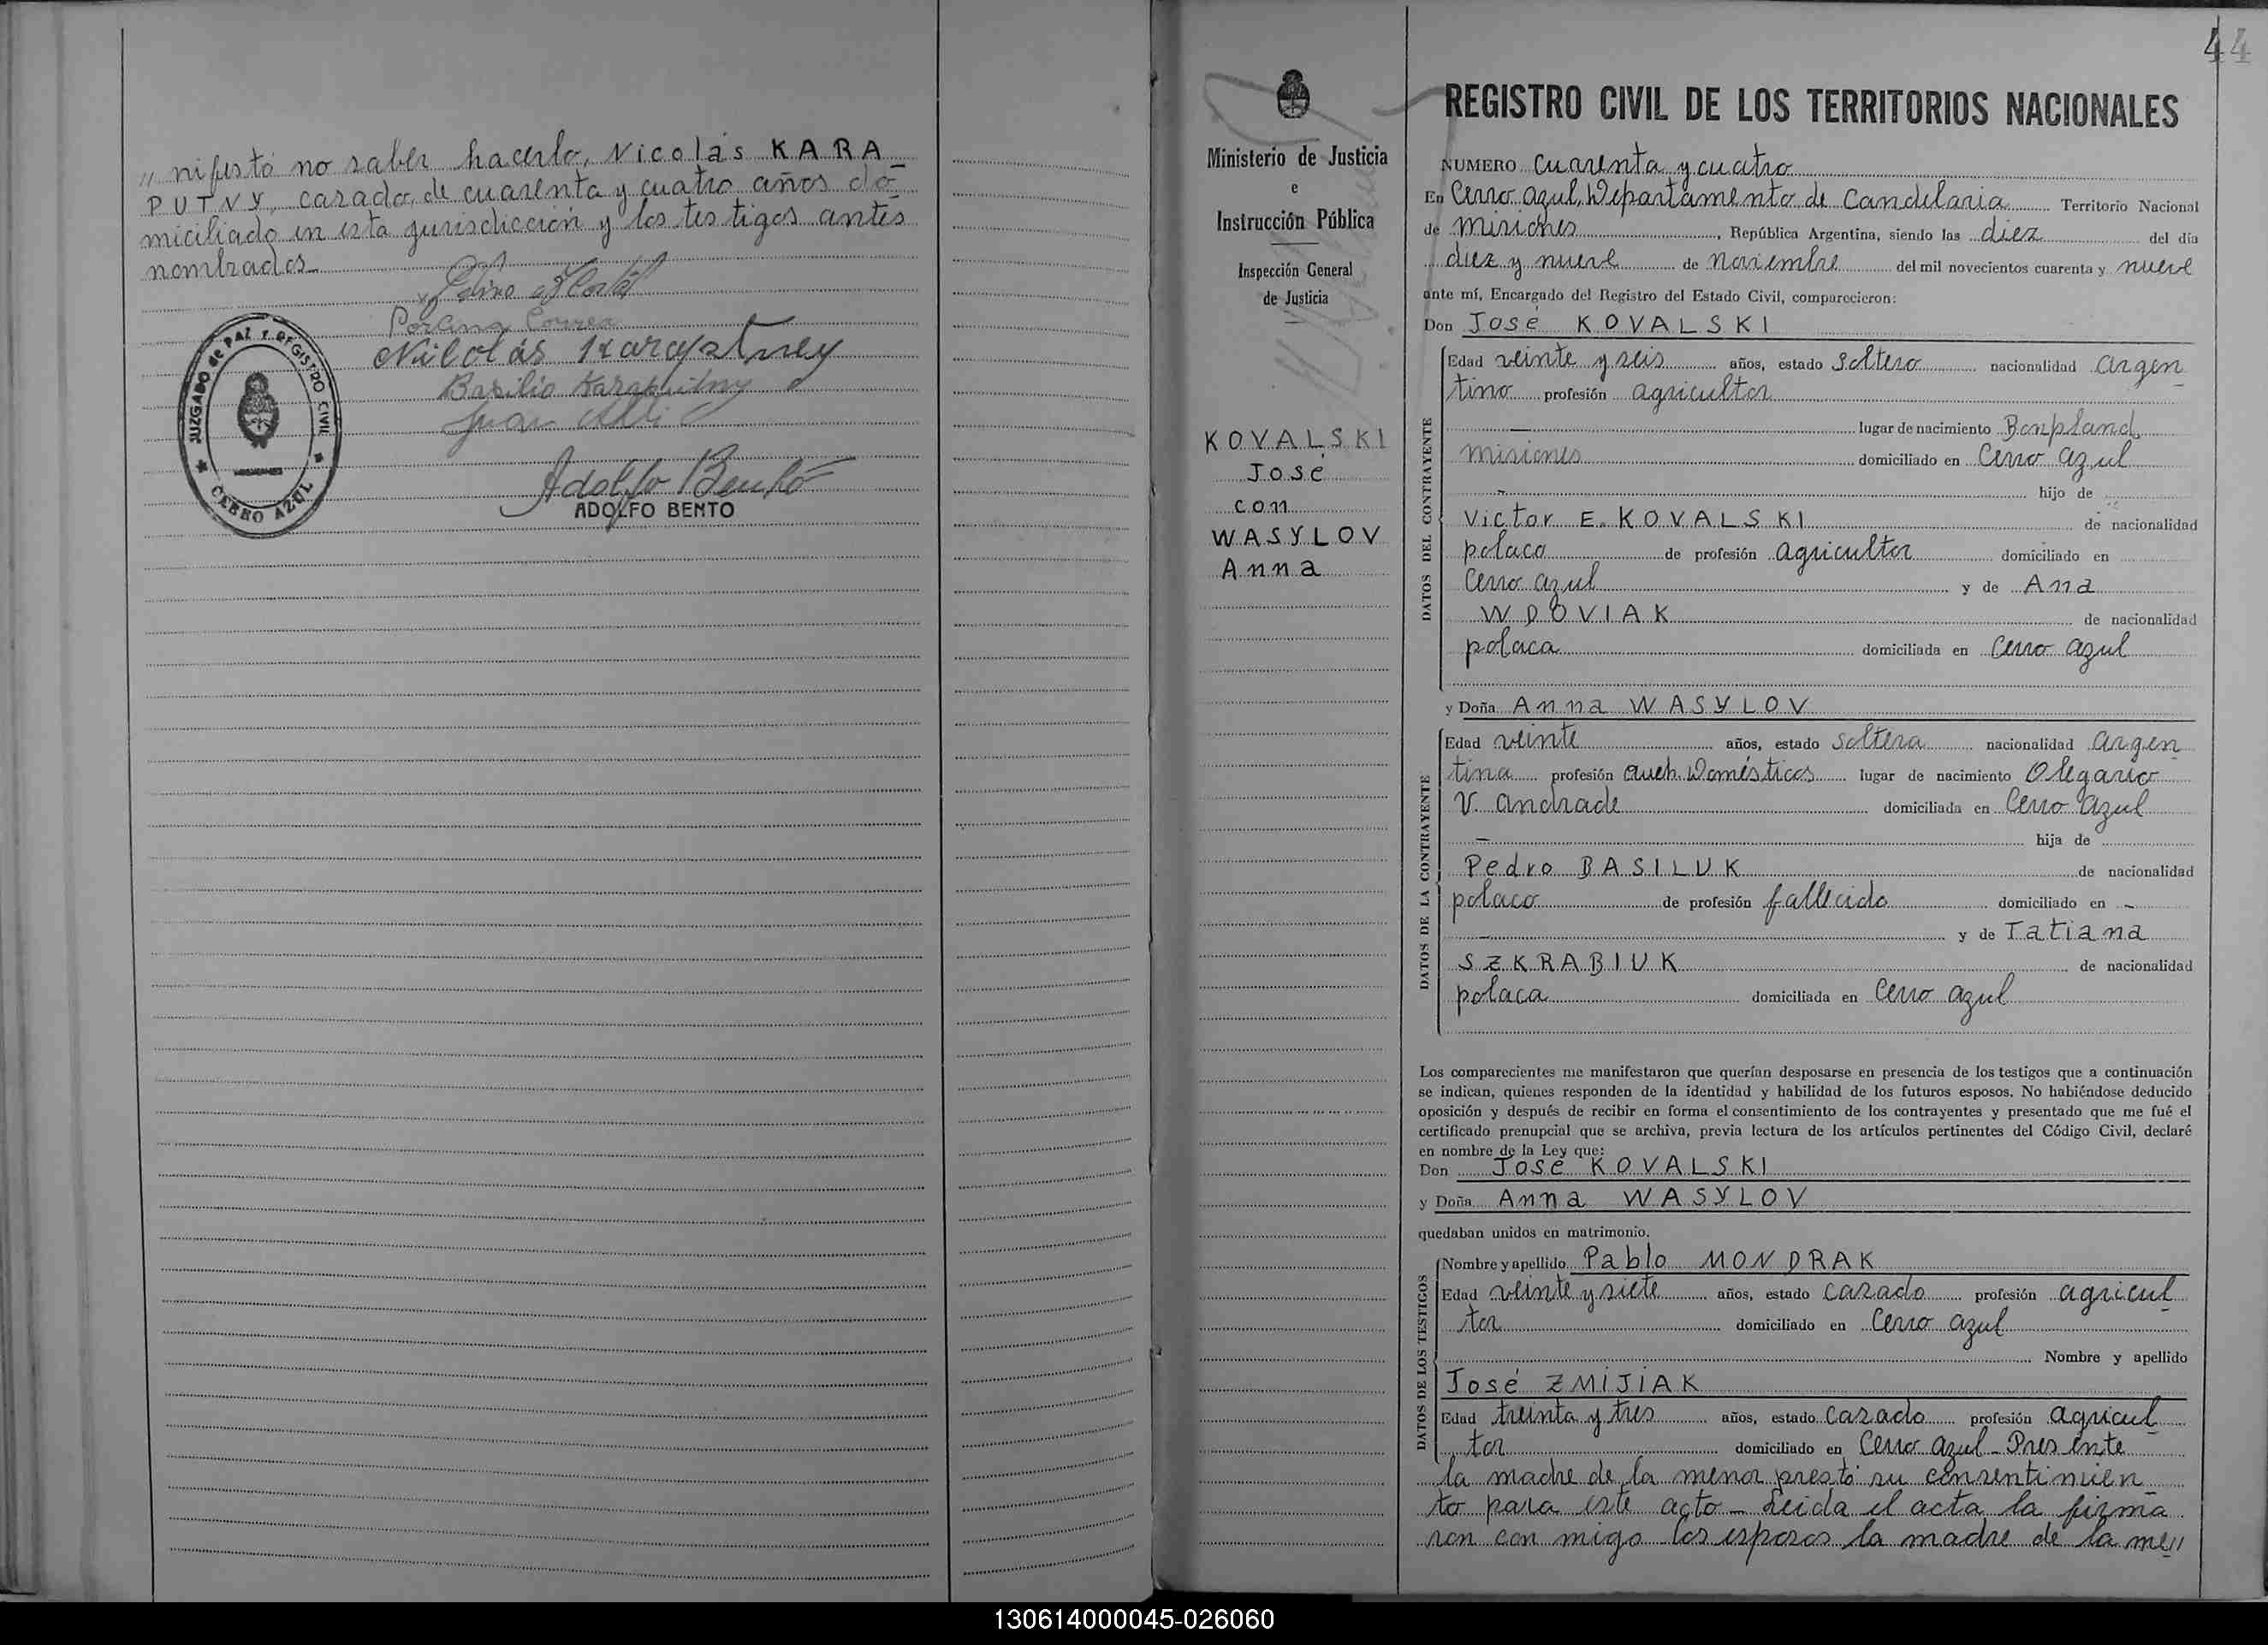 „ nifestó no saber hacerlo, Nicolás KARA_
PUTNY, casado, de cuarenta y cuatro años do_
miciliado en esta jurisdicción y los testigos antes
nombrados_
Nicolás
Basilio Karaputny
Juan
Adolfo Bentó
ADOLFO BENTO
JUZGADO de PAZ Y REGISTRO CIVIL
CERRO AZUL
44
Ministerio de Justicia
e
Instrucción Pública
Inspección General
de Justicia
KOVALSKI
José
con
WASYLOV
Anna
REGISTRO CIVIL DE LOS TERRITORIOS NACIONALES
NUMERO cuarenta y cuatro
En Cerro azul, Departamento de Candelaria Territorio Nacional
de misiones, República Argentina, siendo las diez del día
diez y nueve de noviembre del mil novecientos cuarenta y nueve
ante mí, Encargado del Registro del Estado Civil, comparecieron:
Don José KOVALSKI
DATOS DEL CONTRAYENTE
Edad veinte y seis años, estado soltero nacionalidad argen_
tino profesión agricultor
— lugar de nacimiento Bonpland,
misiones domiciliado en Cerro azul
– hijo de
Victor E. KOVALSKI de nacionalidad
polaco de profesión agricultor domiciliado en
Cerro azul y de Ana
WDOVIAK de nacionalidad
polaca domiciliada en Cerro azul
y Doña Anna WASYLOV
DATOS DE LA CONTRAYENTE
Edad veinte años, estado soltera nacionalidad argen_
tina profesión queh. Domésticos lugar de nacimiento Olegario
V. andrade domiciliada en Cerro azul
– hija de
Pedro BASILUK de nacionalidad
polaco de profesión fallecido domiciliado en –
– y de Tatiana
SZKRABIUK de nacionalidad
polaca domiciliada en Cerro azul
Los comparecientes me manifestaron que querían desposarse en presencia de los testigos que a continuación
se indican, quienes responden de la identidad y habilidad de los futuros esposos. No habiéndose deducido
oposición y después de recibir en forma el consentimiento de los contrayentes y presentado que me fué el
certificado prenupcial que se archiva, previa lectura de los artículos pertinentes del Código Civil, declaré
en nombre de la Ley que:
Don José KOVALSKI
y Doña Anna WASYLOV
quedaban unidos en matrimonio.
DATOS DE LOS TESTIGOS
Nombre y apellido Pablo MONDRAK
Edad veinte y siete años, estado casado profesión agricul_
tor domiciliado en Cerro azul
Nombre y apellido
José ZMIJIAK
Edad treinta y tres años, estado casado profesión agricul_
tor domiciliado en Cerro azul_Presente
la madre de la menor prestó su consentimien_
to para este acto_ Leída el acta la firma_
ron con migo los esposos la madre de la me„
130614000045-026060